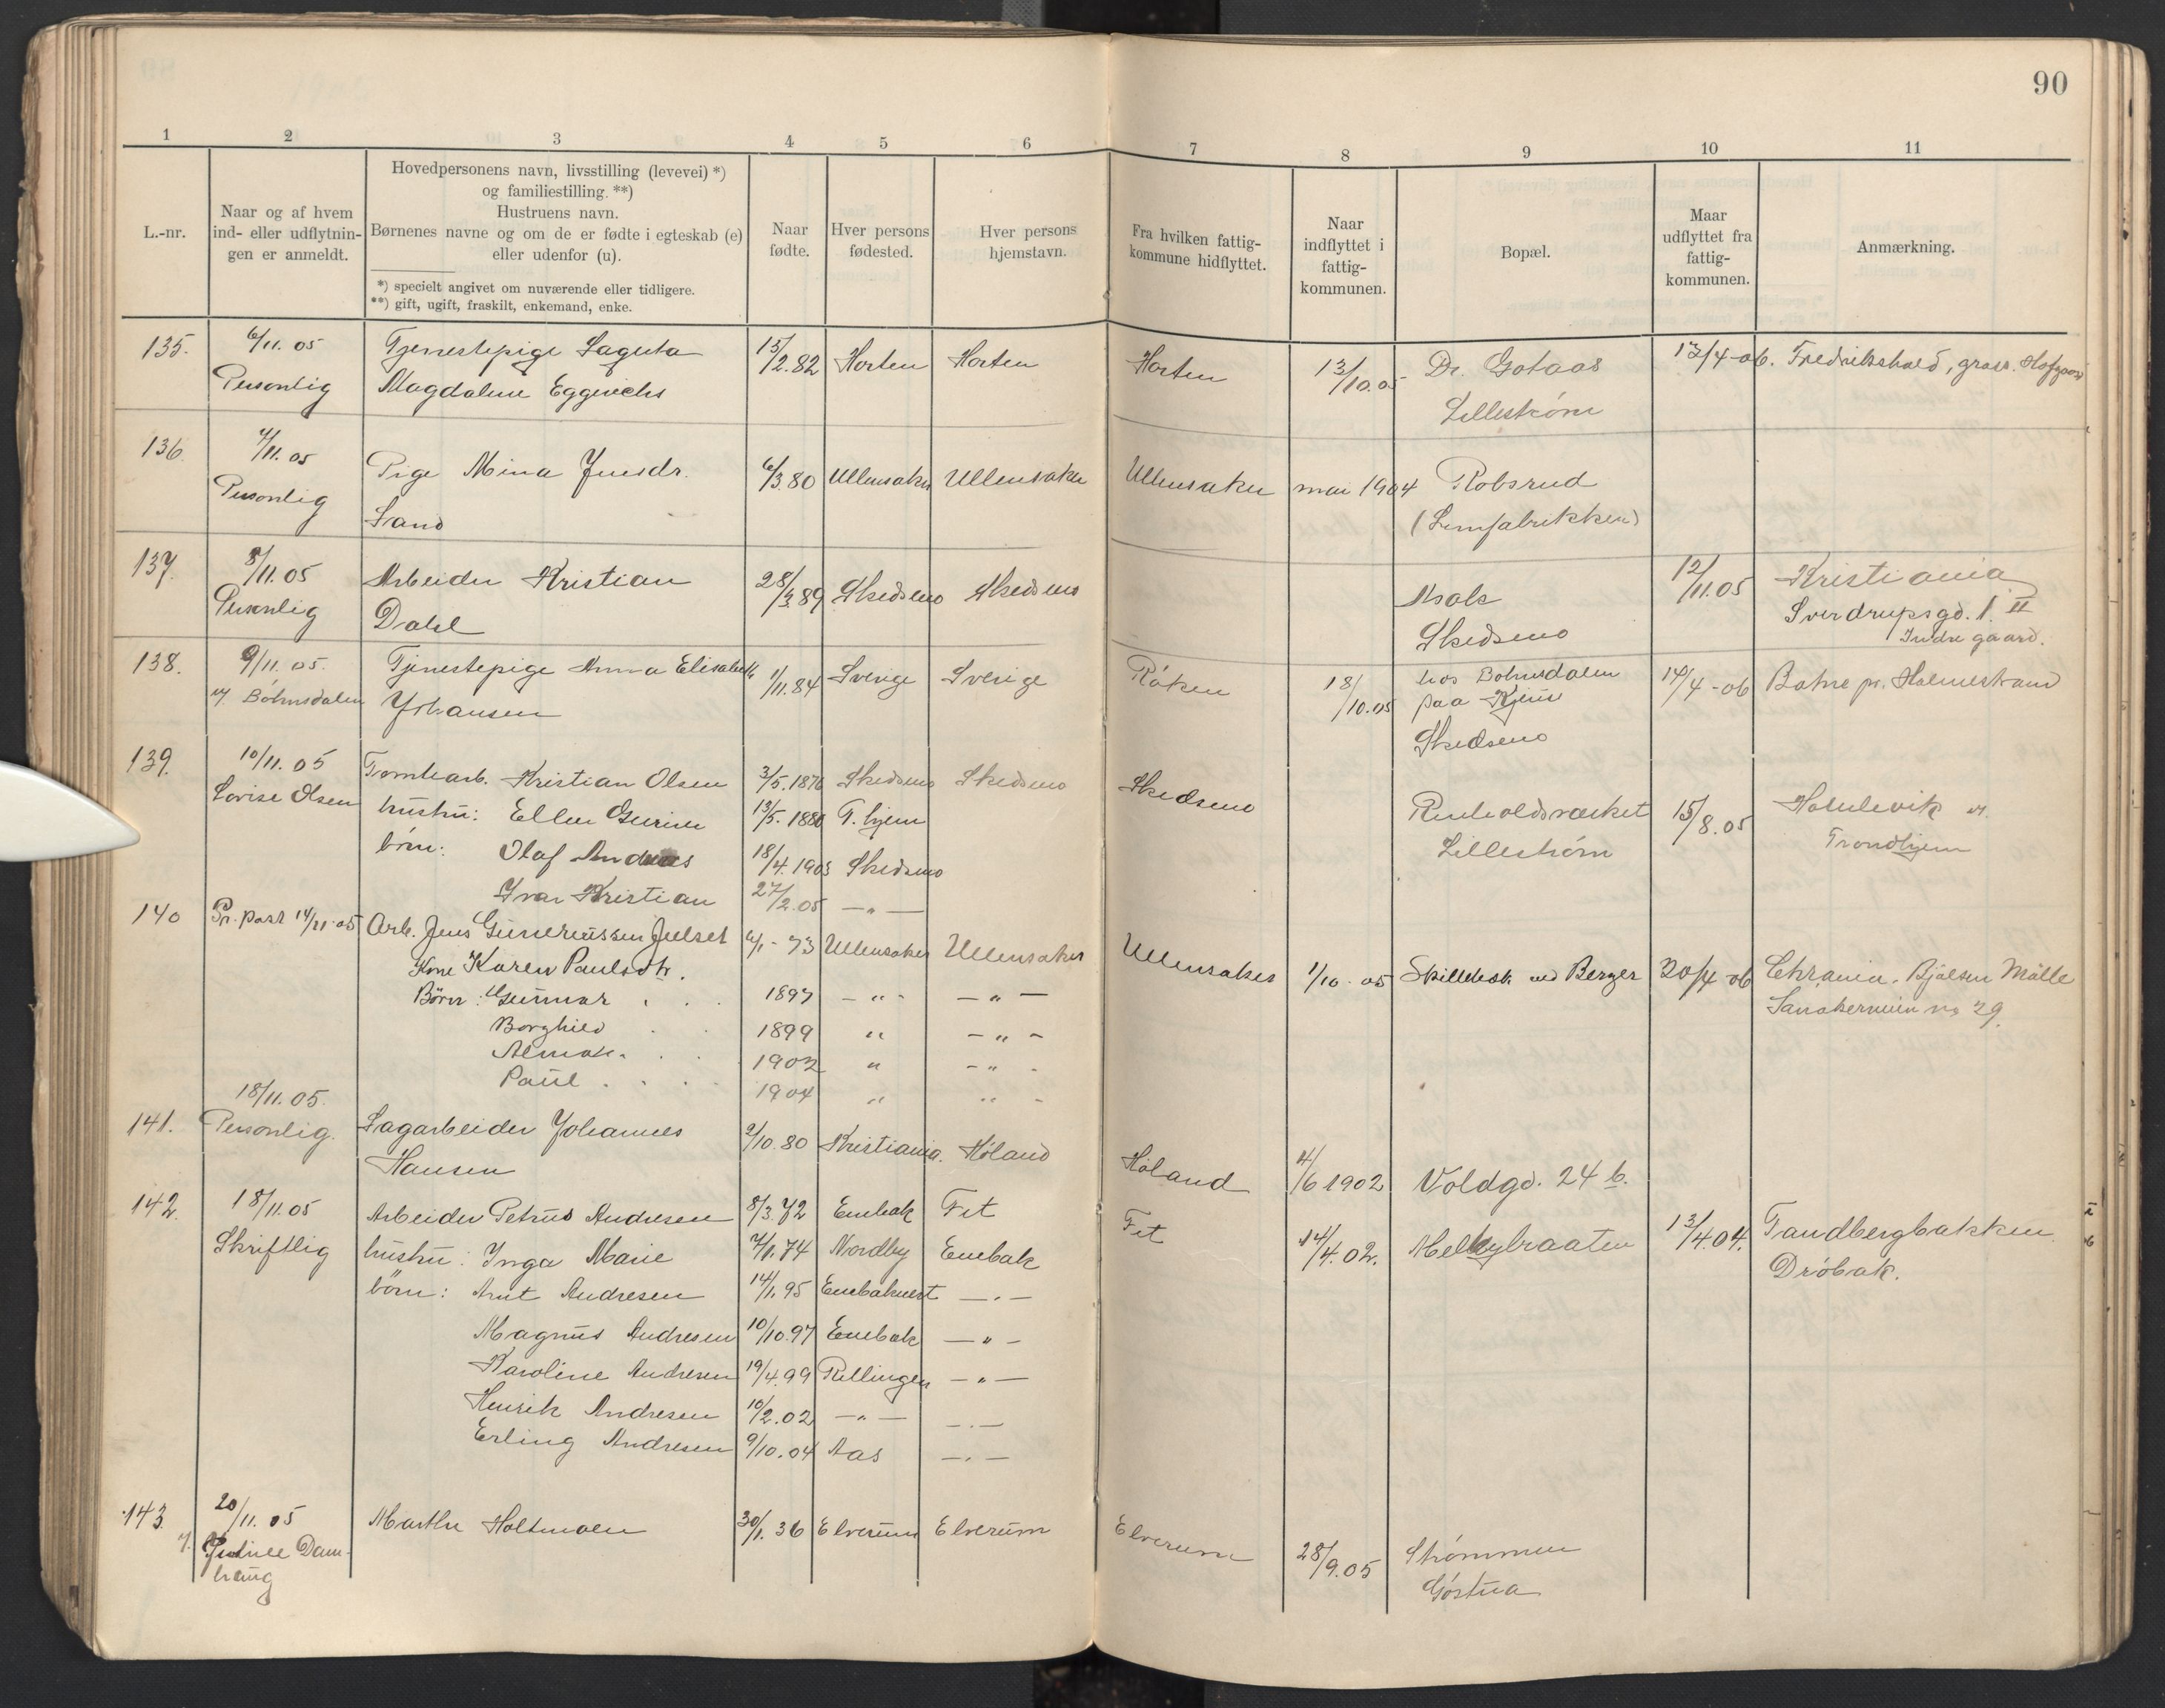 90
1 2 3 4 5 6 7 8 9 10 11
L.-nr.
Naar og af hvem
ind- eller udflytnin-
gen er anmeldt.
Hovedpersonens navn, livsstilling (levevei) *)
og familiestilling. **)
Hustruens navn.
Børnenes navne og om de er fødte i egteskab (e)
eller udenfor (u).
*) specielt angivet om nuværende eller tidligere.
**) gift, ugift, fraskilt, enkemand, enke.
Naar
fødte.
Hver persons
fødested.
Hver persons
hjemstavn.
Fra hvilken fattig-
kommune hidflyttet.
Naar
indflyttet i
fattig-
kommunen.
Bopæl.
Maar
udflyttet fra
fattig-
kommunen.
Anmærkning.
135. 6/11. 05 Tjenestepige Sagusta 15/2.82 Horten Horten Horten 13/10.05 Dr. Gotaas 13/4-06. Fredrikshald,
Personlig Magdalene Lillestrøm
136. 4/11. 05 Pige Mina Jensdr. 6/3.80 Ullensaker Ullensaker Ullensaker mai 1904 Robsrud
Personlig Sand (Limfabrikken)
137. 8/11. 05 Arbeider Kristian 28/3.89 Skedsmo Skedsmo Asak 12/11.05 Kristiania
Personlig Dahl Skedsmo Sverdrupsgd. 1. II
Indre gaard.
138. 9/11. 05. Tjenestepige Anna Elisabeth 1/11.84 Sverige Sverige Røken 18/10.05 hos Bøhnsdalen 14/4-06 Botne pr. Holmestrand
v. Bøhnsdalen Johansen paa Kjeus
Skedsmo
139. 10/11. 05 Tomtearb. Kristian Olsen 3/5.1876 Skedsmo Skedsmo Skedsmo Reinholdsværket 15/8.05 Hommelvik v.
Lovise Olsen hustru: Ellen 13/5.1880 T.hjem Lillestrøm Trondhjem
børn: Olaf Andreas 18/4.1903 Skedsmo
Ivar Kristian 27/2.05 — " —
140 Pr. post 14/11-05 Arb. Jens Guneriussen Julset 6/1-73 Ullensaker Ullensaker Ullensaker 1/10-05 Skillebæk ved Berger 20/4-06 Chrania. Bjølsen Mølle
Kone Karen Paulsdtr. Sandakerveien no 29.
Børn: Gunnar . . 1897 — " — — " —
Borghild . . 1899 " — " —
Almar. . . 1902 " — " —
Paul . . . 1904 " " -
18/11. 05.
141. Personlig. Sagarbeider Johannes 9/10.80 Kristiania. Høland Høland 4/6 1902 Voldgd. 24 b.
Hansen
142. 18/11. 05 Arbeider Petrus Andresen 8/3.72 Enebak Fet Fet 14/4.02. Melbybraaten 13/4.04. Tandbergbakken
Skriftlig hustru: Inga Marie 7/1.74 Nordby Enebak Drøbak.
børn: Arnt Andresen 14/1.95 Enebakvest — " —
Magnus Andresen 10/10.97 Enebak — " —
Karoline Andresen 19/4.99 Rellingen — " —
Henrik Andresen 10/2.02 — " — — " —
Erling Andresen 9/10.04 Aas — " —
143. 20/11. 05 Marthe Holtmoen 30/1.36 Elverum Elverum Elverum 28/9.05 Strømmen